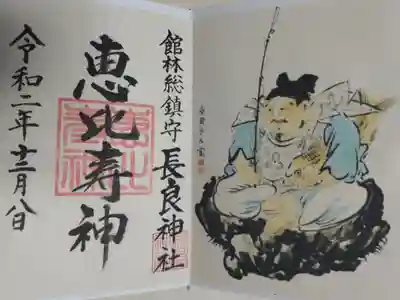 館林総鎮守
長良神社
恵比寿神
令和二年十二月八日